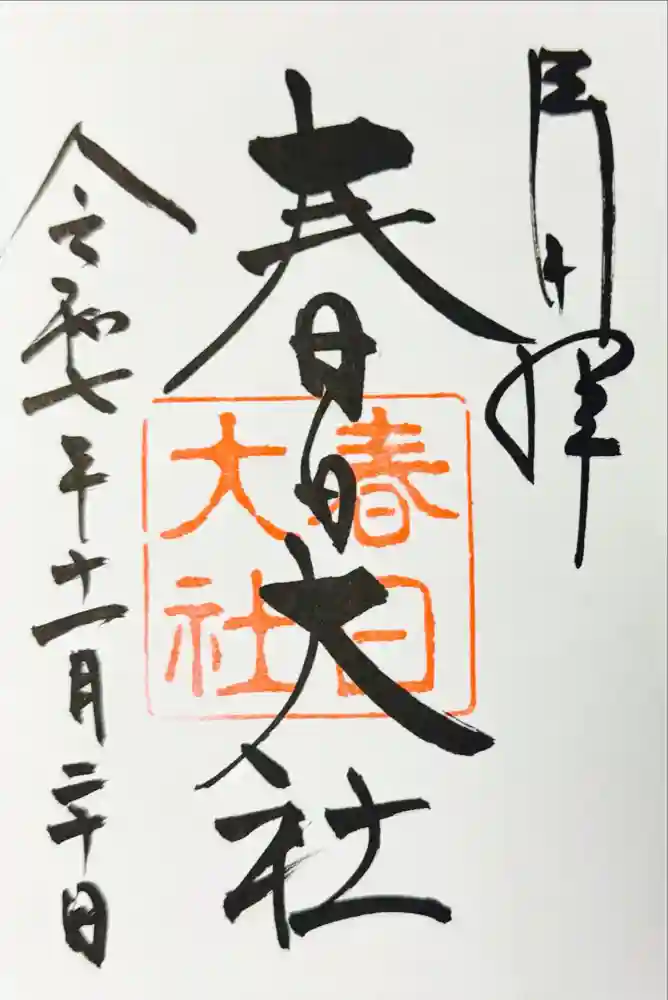 奉拝
春日大社
春日
大社
令和七年十一月二十日